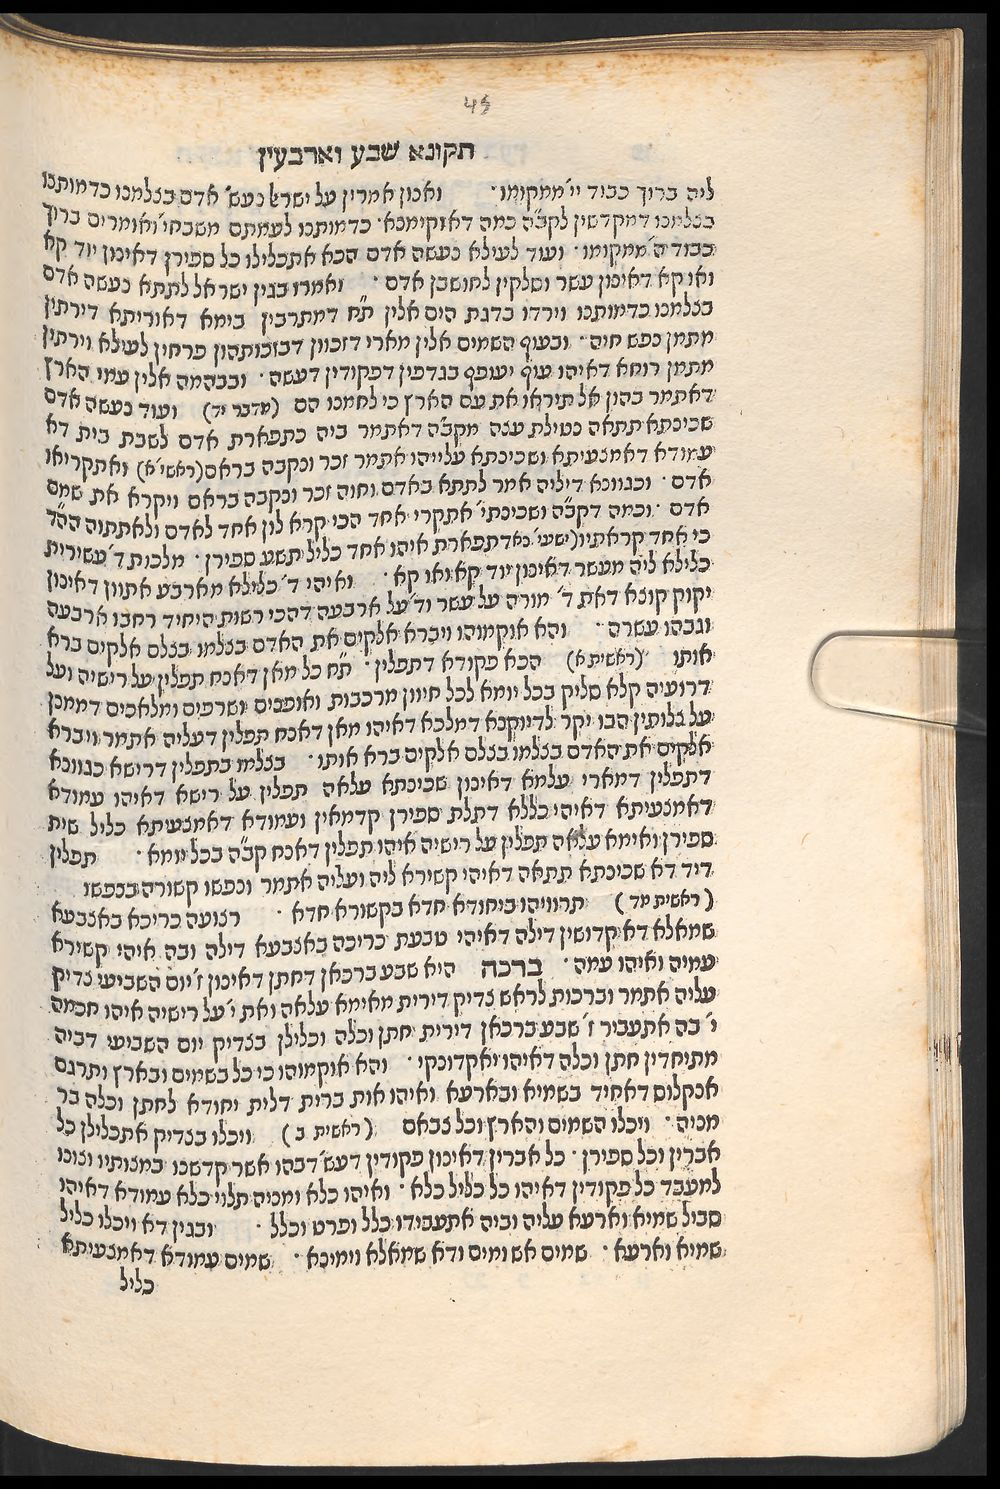 45
תקונא שבע וארבעין
ליה ברוך כבוד יי׳ ממקומו · ואכון אמרין על ישראל נעש׳ אדם בצלמנו כדמותנו
בצלמנו דמקדשין לקב״ה כמה דאוקימנא · כדמותנו לעמתם משבחי׳ ואומרים ברוך
כבוד ה׳ ממקומו · ועוד לעילא נעשה אדם הכא אתכלילו כל ספירן דאינון יוד קא
ואו קא דאינון עשר וסלקין לחושבן אדם · ואמרו בגין ישראל לתתא נעשה אדם
בצלמנו כדמותנו וירדו בדגת הים אלין ת״ח דמתרבין בימא דאוריתא דירתין
מתמן נפש חיה · ובעוף השמים אלין מארי דזכוון דבזכותהון פרחין לעילא וירתין
מתמן רוחא דאיהו עוף יעופף בגדפין דפקודין דעשה · ובבהמה אלין עמי הארץ
דאתמר בהון אל תיראו את עם הארץ כי לחמנו הם (מדבר יד) ועוד נעשה אדם
שכינתא תתאה נטילת עצה מקב״ה דאתמר ביה כתפארת אדם לשבת בית דא
עמודא דאמצעיתא ושכינתא עלייהו אתמר זכר ונקבה בראם (ראשי׳ א) ואתקריאו
אדם · וכגוונא דיליה אמר לתתא באדם וחוה זכר ונקבה בראם ויקרא את שמם
אדם · וכמה דקב״ה ושכינתי׳ אתקרי׳ אחד הכי קרא לון אחד לאדם ולאתתוה הה״ד
כי אחד קראתיו (ישעי׳ נא) דתפארת איהו אחד כליל תשע ספירן · מלכות ד׳ עשירית
כלילא ליה מעשר דאינון יוד קא ואו קא · ואיהי ד׳ כלילא מארבע אתוון דאינון
יקוק קוצא דאת ד׳ מורה על עשר וד׳ על ארבעה דהכי רשות היחיד רחבו ארבעה
וגבהו עשרה · והא אוקמוהו ויברא אלקים את האדם בצלמו בצלם אלקים ברא
אותו (ראשית א) הכא פקודא דתפלין · ת״ח כל מאן דאנח תפלין על רישיה ועל
דרועיה קלא סליק בכל יומא לכל חיוון מרכבות ואופנים ושרפים ומלאכים דממנן
על צלותין הבו יקר לדיוקנא דמלכא דאיהו מאן דאנח תפלין דעליה אתמר ויברא
אלקים את האדם בצלמו בצלם אלקים ברא אותו · בצלמו בתפלין דרישא כגוונא
דתפלין דמארי עלמא דאינון שכינתא עלאה תפלין על רישא דאיהו עמודא
דאמצעיתא דאיהי כללא דתלת ספירן קדמאין ועמודא דאמצעיתא כליל שית
ספירן ואימא עלאה תפלין על רישיה איהו תפלין דאנח קב״ה בכל יומא · תפלין
דיד דא שכינתא תתאה דאיהי קשירא ליה ועליה אתמר ונפשו קשורה בנפשו
(ראשית מד) תרווייהו ביחודא חדא בקשורא חדא · רצועה כריכא באצבעא
שמאלא דא קדושין דילה דאיהי טבעת כריכה באצבעא דילה ובה איהי קשירא
עמיה ואיהו עמה · ברכה היא שבע ברכאן דחתן דאינון ז׳ יום השביעי צדיק
עליה אתמר וברכות לראש צדיק דירית מאימא עלאה ואת י׳ על רישיה איהו חכמה
י׳ בה אתעביר ז׳ שבע ברכאן דירית חתן וכלה וכלילן בצדיק יום השביעי דביה
מתיחדין חתן וכלה דאיהו יאקדונקו · והא אוקמוהו כי כל בשמים ובארץ ותרגם
אנקלוס דאחיד בשמיא ובארעא ואיהו אות ברית דלית יחודא לחתן וכלה בר
מניה · ויכלו השמים והארץ וכל צבאם (ראשית ב) ויכלו בצדיק אתכלילן כל
אברין וכל ספירן · כל אברין דאינון פקודין דעש׳ דבהו אשר קדשנו במצותיו וצונו
למעבד כל פקודין דאיהו כל כליל כלא · ואיהו כלא ומניה תלוי כלא עמודא דאיהו
סביל שמיא וארעא עליה וביה אתעבידו כלל ופרט וכלל · ובגין דא ויכלו כליל
שמיא וארעא · שמים אש ומים ודא שמאלא וימינא · שמים עמודא דאמצעיתא
כליל